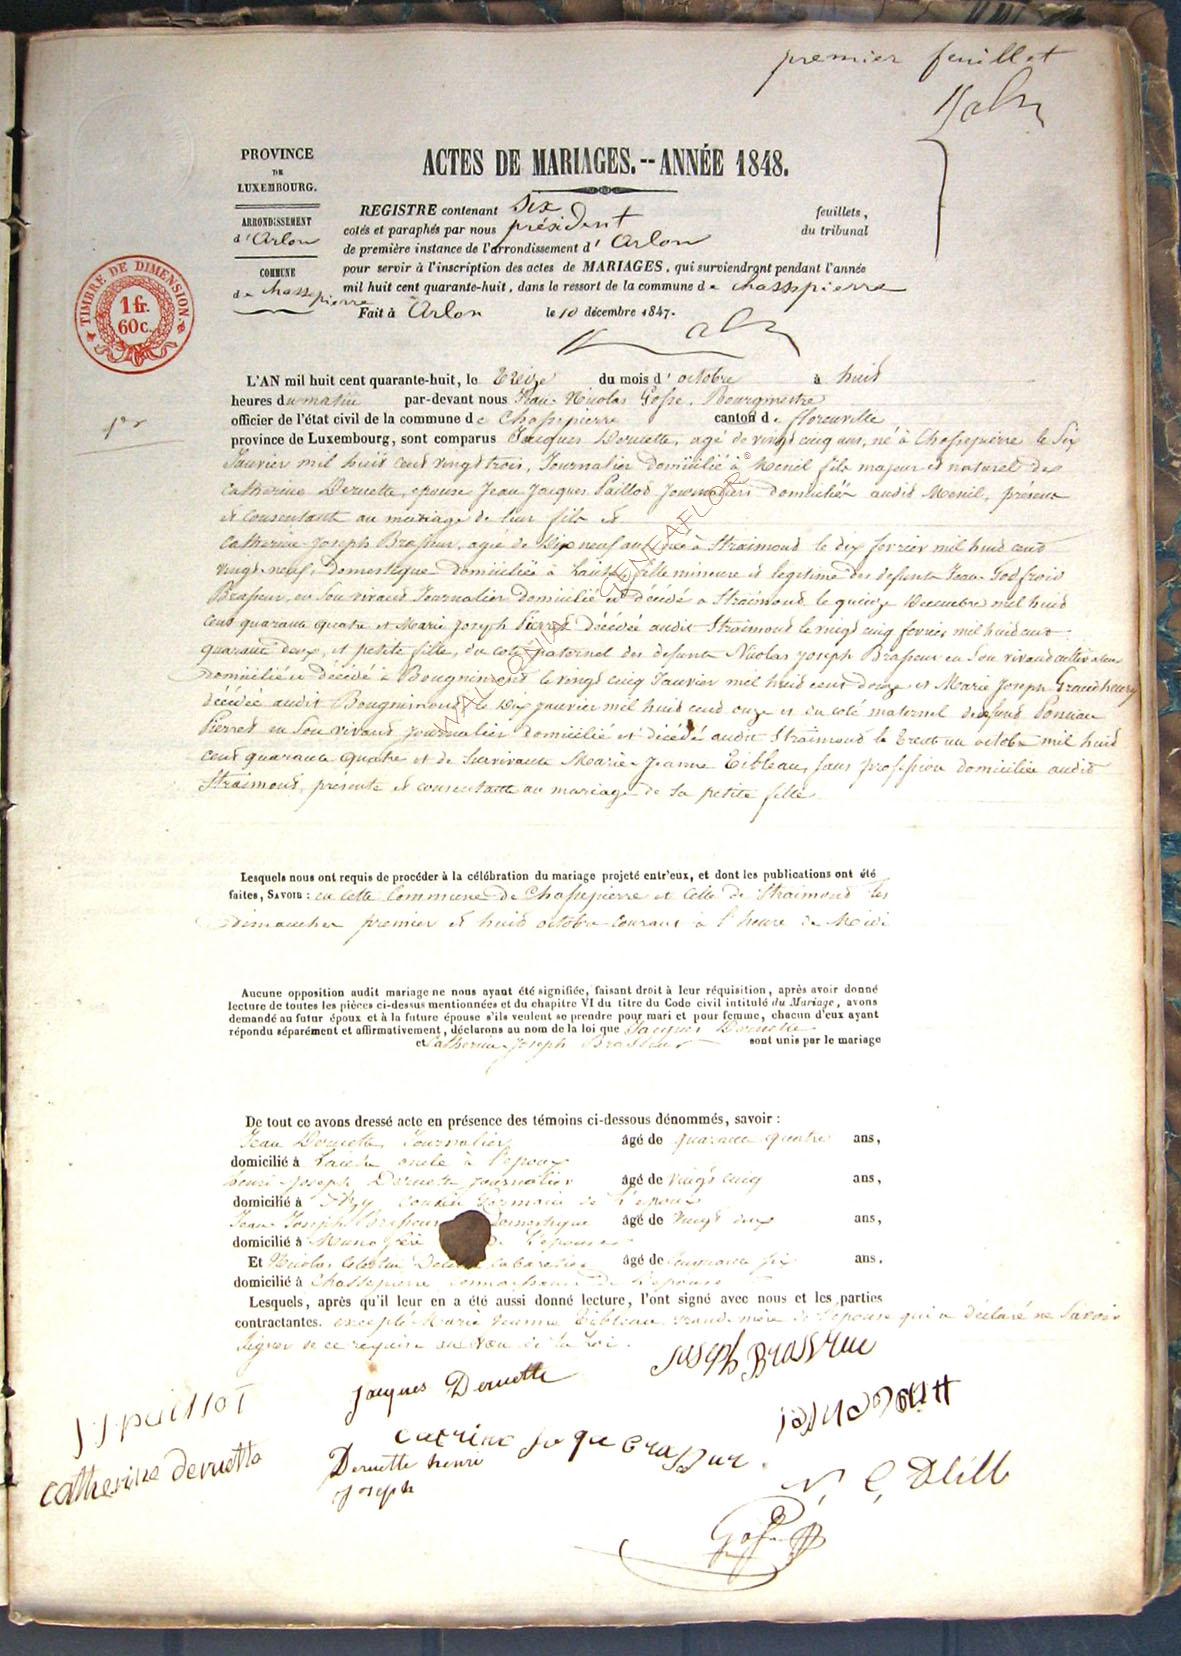 premier feuillet
PROVINCE
DE
LUXEMBOURG.
ARRONDISSEMENT
d'Arlon
COMMUNE
de Chassepierre
TIMBRE DE DIMENSION.
1 fr.
60 c.
ACTES DE MARIAGES.--ANNÉE 1848.
REGISTRE contenant six feuillets,
cotés et paraphés par nous président du tribunal
de première instance de l'arrondissement d'Arlon
pour servir à l'inscription des actes de MARIAGES, qui surviendront pendant l'année
mil huit cent quarante-huit, dans le ressort de la commune de Chassepierre
Fait à Arlon le 10 décembre 1847.
1er
L'AN mil huit cent quarante-huit, le treize du mois d'octobre à huit
heures du matin par-devant nous Jean Nicolas Gofse, Bourgmestre
officier de l'état civil de la commune de Chassepierre canton de florenville
province de Luxembourg, sont comparus Jacques Deruette, agé de vingt cinq ans, né à Chassepierre le Six
Janvier mil huit cent vingt trois, Journalier domicilié à Menil fils majeur et naturel de
Catherine Deruette, epouse Jean Jacques Paillot Journaliers domiciliés audit Menil, présens
et consentant au mariage de leur fils et
Catherine Joseph Brasseur, agée de Dix neuf ans née à Straimont le dix fevrier mil huit cent
vingt-neuf, Domestique domiciliée à Laiche, fille mineure et legitime des defunts Jean Godfroid
Brasseur, en son vivant Journalier domicilié et décédé à Straimont le quinze Decembre mil huit
cent quarante quatre et Marie Joseph Pierret décédée audit Straimont le vingt cinq fevrier mil huit cent
quarante deux, et petite fille, du coté paternel des defunts Nicolas Joseph Brasseur en son vivant cultivateur
domicilié et décédé à Bougnimont le vingt cinq Janvier mil huit cent douze et Marie Joseph Grandhenry
décédée audit Bougnimont le dix janvier mil huit cent onze et du coté maternel de defunt
Pierret en son vivant journalier domicilié et décédé audit Straimont le trente un octobre mil huit
cent quarante quatre et de survivante Marie-Jeanne Tibleau, sans profession domiciliée audit
Straimont, présente et consentante au mariage de sa petite fille.
Lesquels nous ont requis de procéder à la célébration du mariage projeté entr'eux, et dont les publications ont été
faites, SAVOIR : en cette Commune de Chassepierre et celle de Straimont les
Dimanches premier et huit octobre courant à l'heure de Midi
Aucune opposition audit mariage ne nous ayant été signifiée, faisant droit à leur réquisition, après avoir donné
lecture de toutes les pièces ci-dessus mentionnées et du chapitre VI du titre du Code civil intitulé du Mariage, avons
demandé au futur époux et à la future épouse s'ils veulent se prendre pour mari et pour femme, chacun d'eux ayant
répondu séparément et affirmativement, déclarons au nom de la loi que Jacques Deruette
et Catherine Joseph Brasseur sont unis par le mariage
De tout ce avons dressé acte en présence des témoins ci-dessous dénommés, savoir :
Jean Deruette Journalier âgé de quarante quatre ans,
domicilié à Laiche oncle à l'epoux
henri-Joseph Deruette journalier âgé de vingt cinq ans,
domicilié à cousin Germain de l'epoux
Jean Joseph Brasseur Domestique âgé de vingt deux ans,
domicilié à Muno frère de l'epouse
Et Nicolas Celestin cabaretier âgé de six ans.
domicilié à Chassepierre connaissance de l'epouse
Lesquels, après qu'il leur en a été aussi donné lecture, l'ont signé avec nous et les parties
contractantes. excepté Marie Jeanne Tibleau Grand mère de l'epouse qui a déclaré ne savoir
signer de ce requise au vœu de la loi.
JJ paillot
Jacques Deruette
Joseph Brassrue
catherine deruette
Deruette henri
Joseph
WALLONIA GENEAFLOR ©